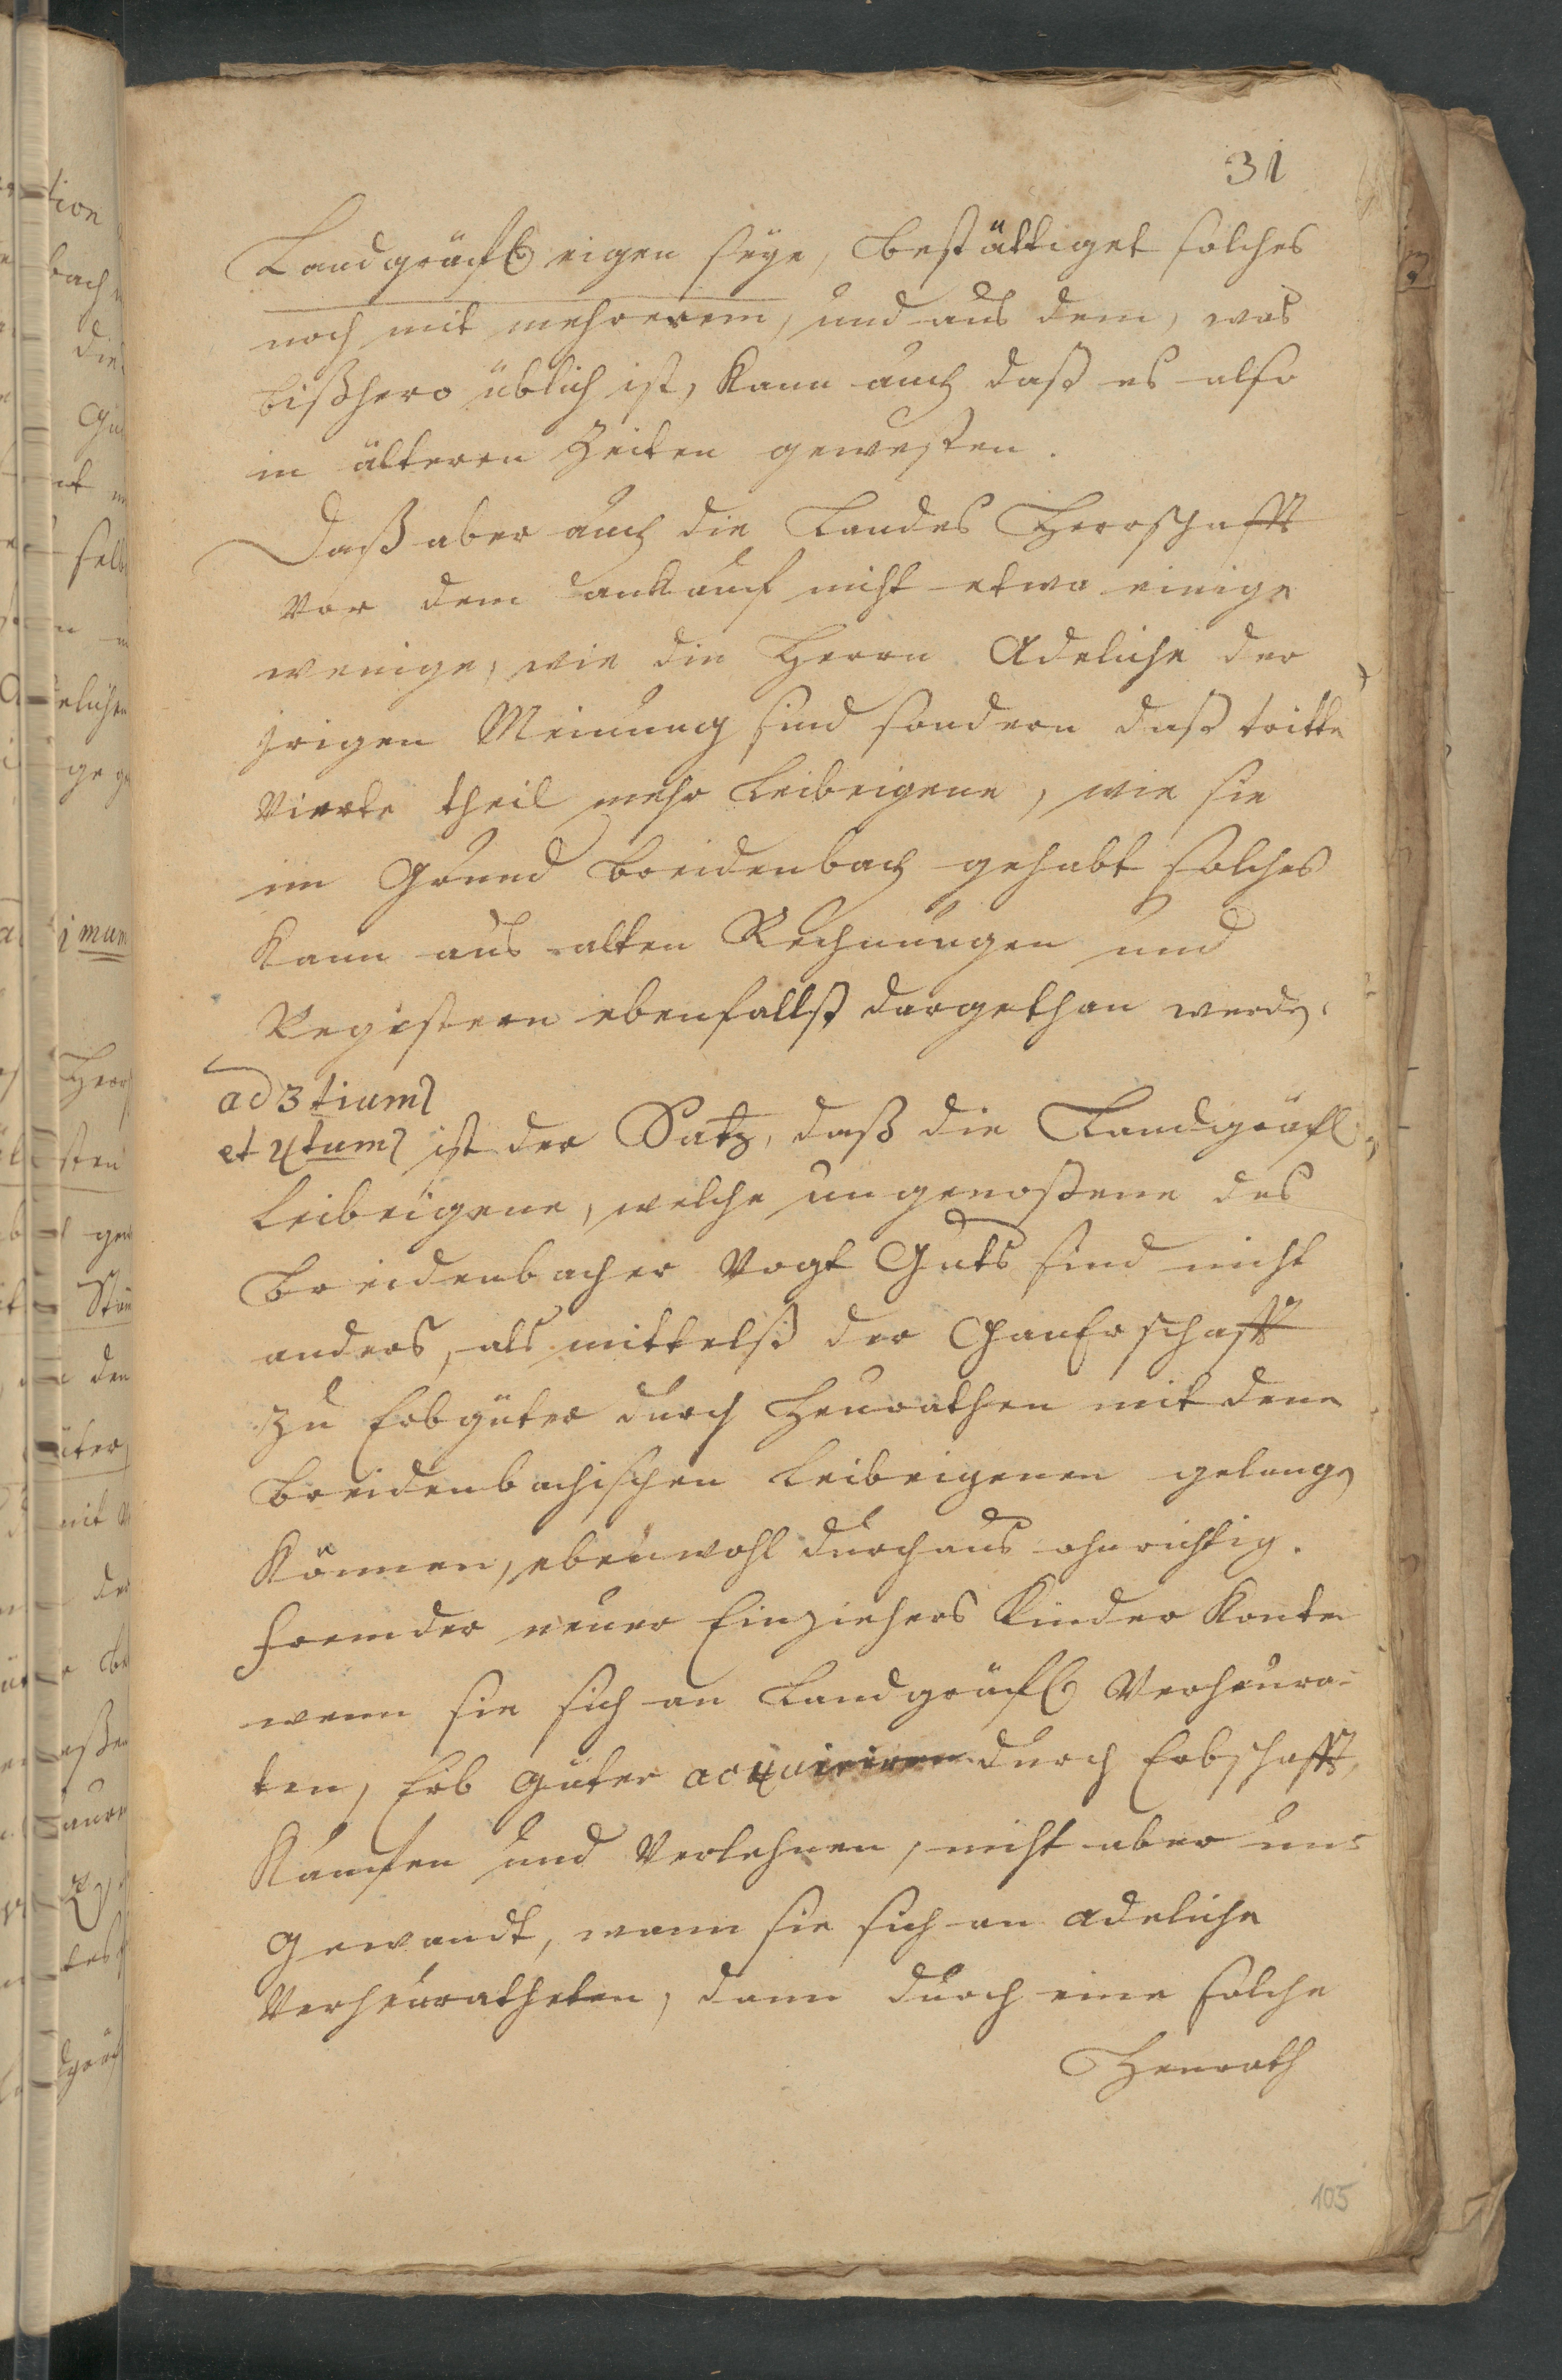 31
Landgräfl. eigen seye, bestättiget solches
noch mit mehrerem, und aus dem, was
bißhero üblich ist, kann auch daß es also
in älteren Zeiten gewesten.
Daß aber auch die Landes Herrschafft
vor dem ankauf nicht etwa einige
wenige, wie die Herrn Adeliche der
irrigen Meinung sind sondern daß tritte
Vierte theil mehr Leibeigene, wie sie
im Grund Breidenbach gehabt solches
kann aus alten Rechnungen und
Registern ebenfallst dargethan werden.
ad 3tium
et 4tum ist der Satz, daß die Landgräfl.
Leibeigene, welche ungenoßene des
Breidenbacher Vogt Guts sind nicht
anders, als mittelst der Ganerschafft
zu Erbgüter durch Heurathen mit denen
Breidenbachischen Leibeigenen gelangen
können, ebenwohl durchaus ohnrichtig.
Fremder neuer Einziehers Kinder konten
wenn sie sich an Landgräfl. Verheura-
ten, Erb Güter acquiriren durch Erbschafft,
Kaufen und Verlehnen, nicht aber um-
gewandt, wann sie sich an adeliche
Verheuratheten, dann durch eine solche
Heurath
105